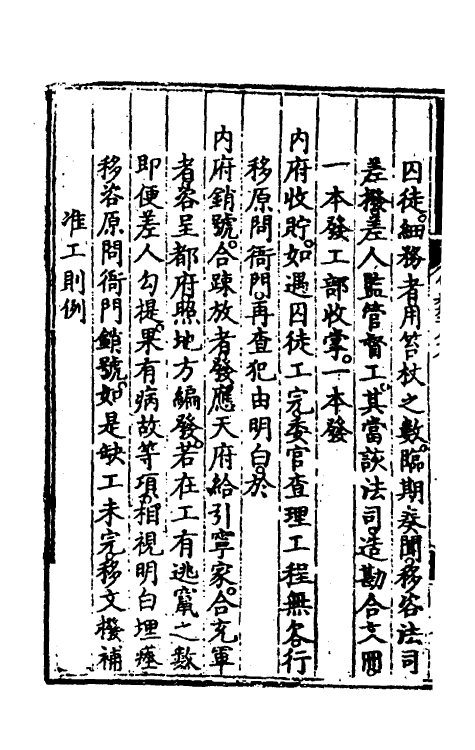 囚徒。細務者用笞杖之數。臨期奏聞。移咨法司
差撥。差人監管督工。其當該法司。造勘合文冊。
一本發工部收掌。一本發
內府收貯。如遇囚徒工完。委官查理工程無咨行
移原問衙門。再查犯由明白。於
內府銷號。合踈放者。發應天府給引寧家。合充軍
者。咨呈都府。照地方編發。若在工有逃竄之數
即便差人勾提。果有病故等項。相視明白埋瘞
移咨原問衙門銷號。如是缺工未完。移文撥補
准工則例